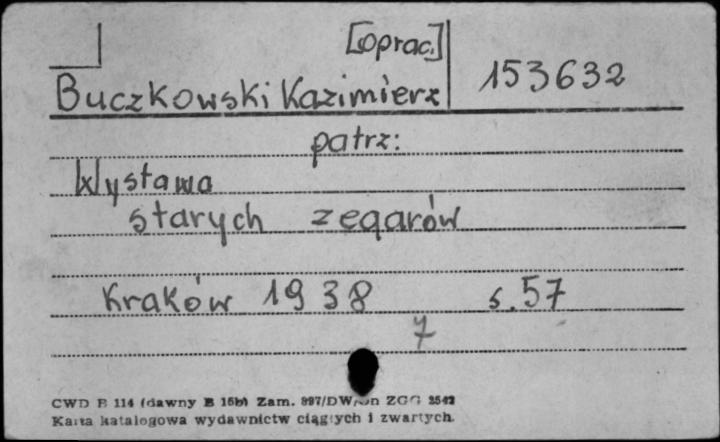 [oprac.]
Buczkowski Kazimierz 153632
patrz:
Wystawa
starych zegarów
Kraków 1938 s. 57
7
CWD B 114 (dawny B 15b) Zam. 897/DW/ ZGG 2542
Karta katalogowa wydawnictw ciągłych i zwartych.